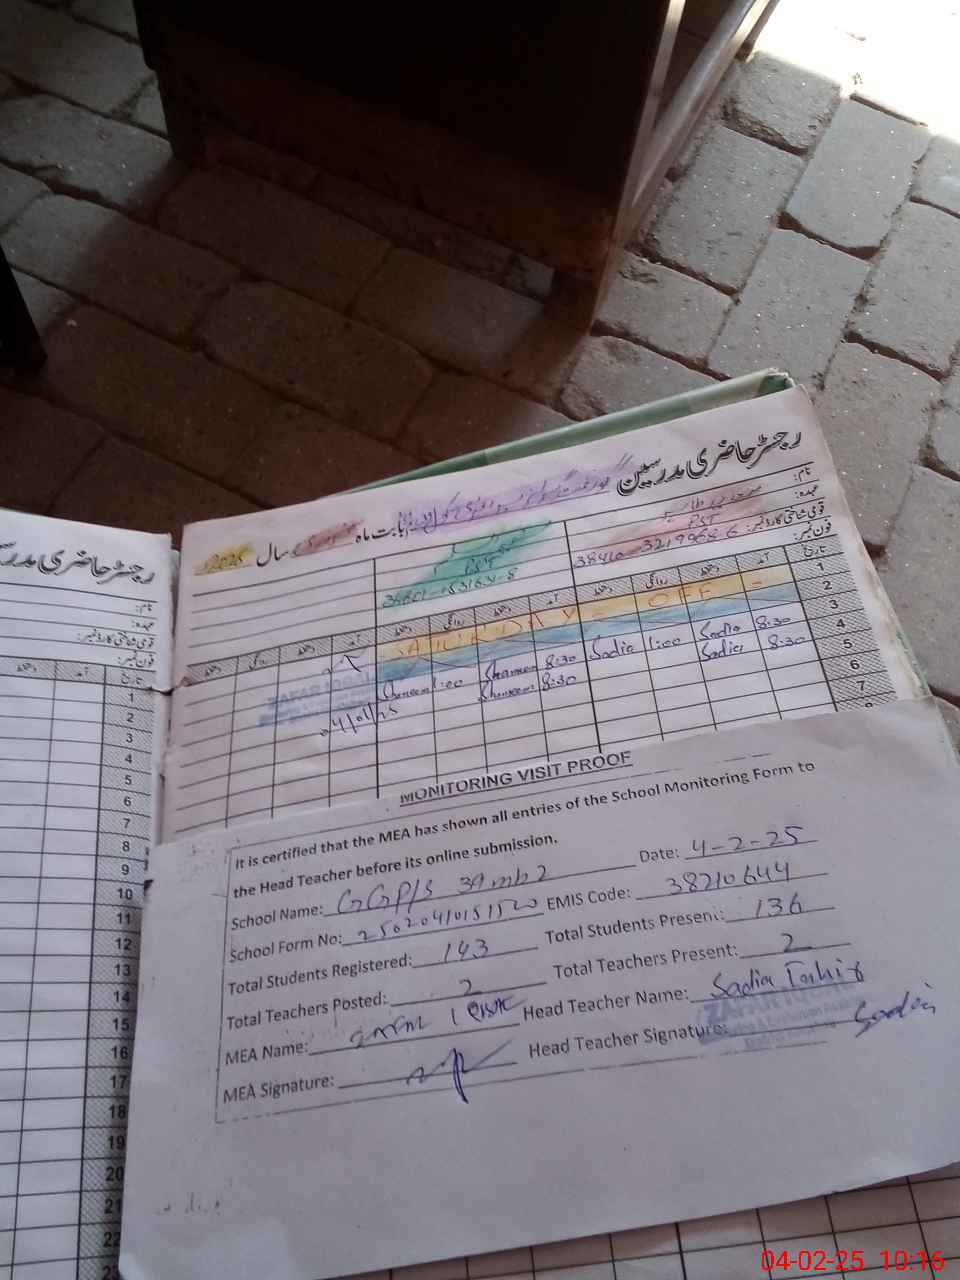 رجسٹر حاضری مدرسین
بابت ماہ فروری سال 2025
نام:
عہدہ: PST PST
قومی شناختی کارڈ نمبر: 38410-3219968-6
فون نمبر:
تاریخ آمد دستخط روانگی دستخط آمد دستخط روانگی دستخط آمد
1 SATURDAY = OFF =
2
3 8:30 Sadia 1:00 Sadia 8:30 1:00
4 8:30 Sadia 8:30
5
6
7
ZAFAR IQBAL
رجسٹر حاضری مدرسین
نام:
عہدہ:
قومی شناختی کارڈ نمبر:
فون نمبر:
تاریخ آمد دستخط
1
2
3
4
5
6
7
8
9
10
11
12
13
14
15
16
17
18
19
20
21
22
23
MONITORING VISIT PROOF
It is certified that the MEA has shown all entries of the School Monitoring Form to
the Head Teacher before its online submission.
School Name: GGP/S 39 mb 2 Date: 4-2-25
School Form No: EMIS Code: 38210644
Total Students Registered: 143 Total Students Present: 136
Total Teachers Posted: 2 Total Teachers Present: 2
MEA Name: Head Teacher Name: Sadia Tahir
MEA Signature: Head Teacher Signature: Sadia
ZAFAR IQBAL
04-02-25 10:16